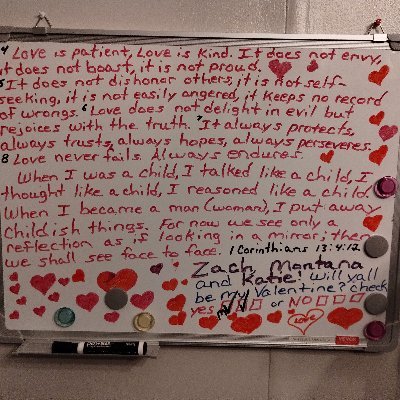 4 Love is patient, Love is kind. It does not envy,
it does not boast, it is not proud.
5 It does not dishonor others, it is not self-
seeking, it is not easily angered, it keeps no record
of wrongs. 6 Love does not delight in evil but
rejoices with the truth. 7 It always protects,
always trusts, always hopes, always perseveres.
8 Love never fails. Always endures.
When I was a child, I talked like a child, I
thought like a child, I reasoned like a child.
When I became a man (woman), I put away
Childish things. For now we see only a
reflection as if looking in a mirror; then
we shall see face to face. 1 Corinthians 13:4-12
Zach, Montana
and Katie! will yall
be my Valentine? check
yes or NO
Love